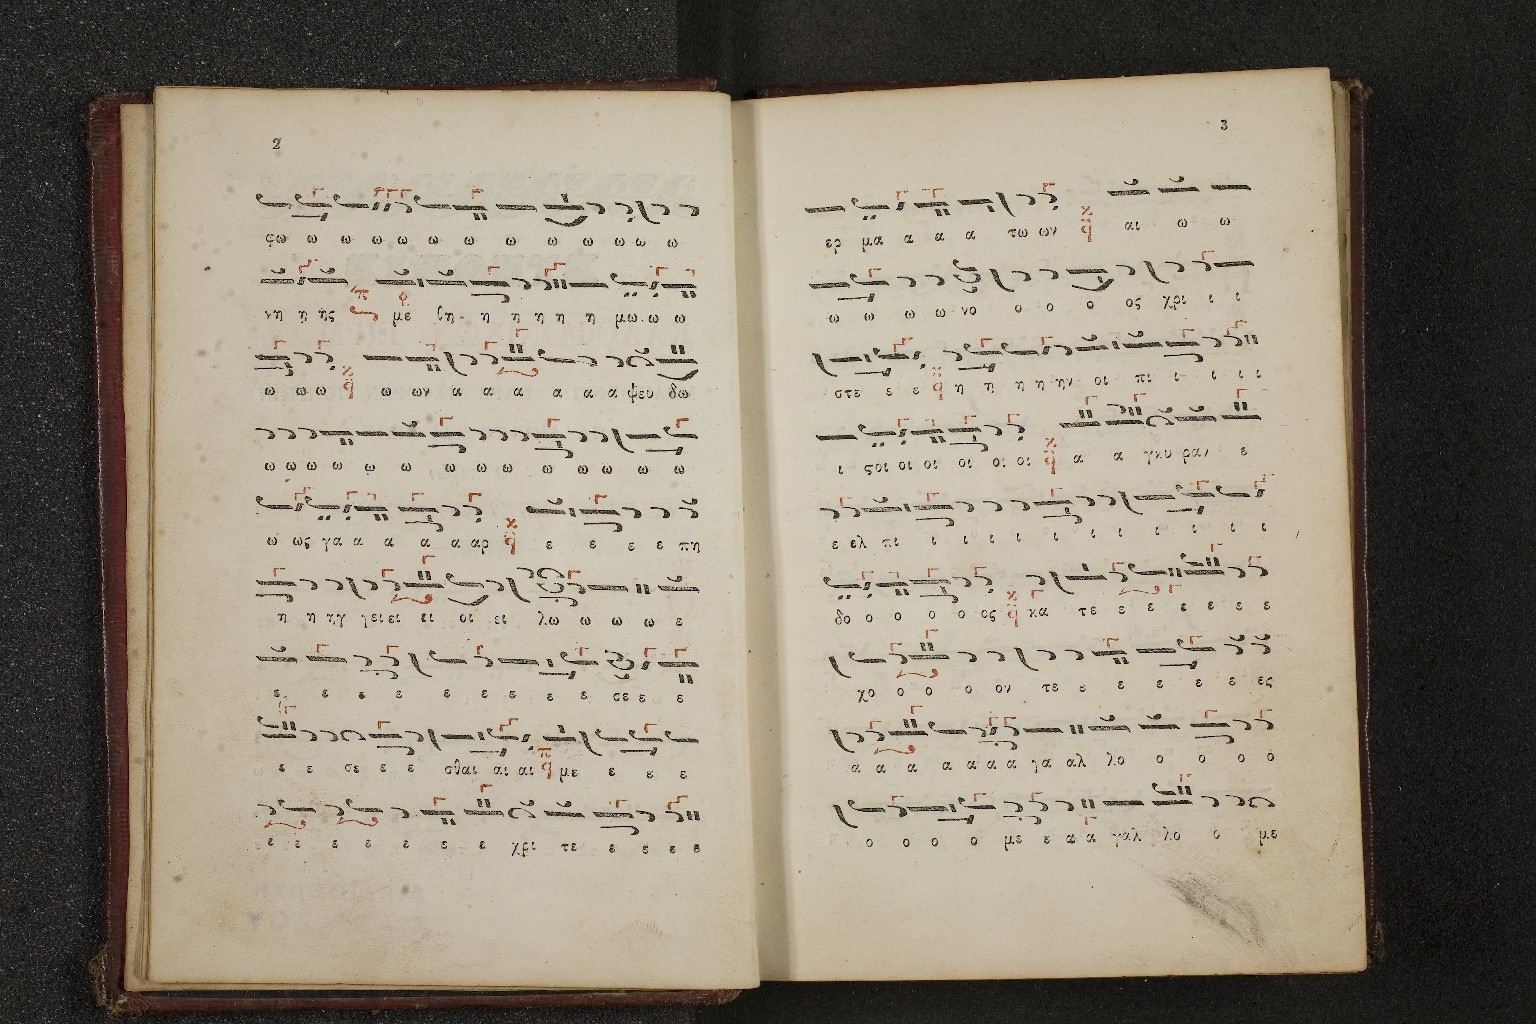 2
φω ω ω ω ω ω ω ω ω ω ω ω
νη η ης με θη η η η η η μω ω ω
ω ω ω ω ων α α α α α α ψευ δω
ω ω ω ω ω ω ω ω ω ω ω ω
ω ως γα α α α α αρ ε ε ε ε πη
η η ηγ γει ει ει οι ει λω ω ω ω ε
ε ε ε ε ε ε ε ε ε σε ε ε
ε ε σε ε ε σθαι αι αι με ε ε ε
ε ε ε ε ε ε ε χρι τε ε ε ε ε
3
ερ μα α α α τω ων αι ω ω
ω ω ω ω νο ο ο ο ος χρι ι ι
στε ε ε η η η η ην οι πι ι ι ι ι
ι ςοι οι οι οι οι οι α α γκυ ραν ε
ε ελ πι ι ι ι ι ι ι ι ι ι ι
δο ο ο ο ο ος κα τε ε ε ε ε ε ε
χο ο ο ο ον τε ε ε ε ε ε ες
α α α α α α α γα αλ λο ο ο ο ο
ο ο ο ο με ε α α γαλ λο ο με